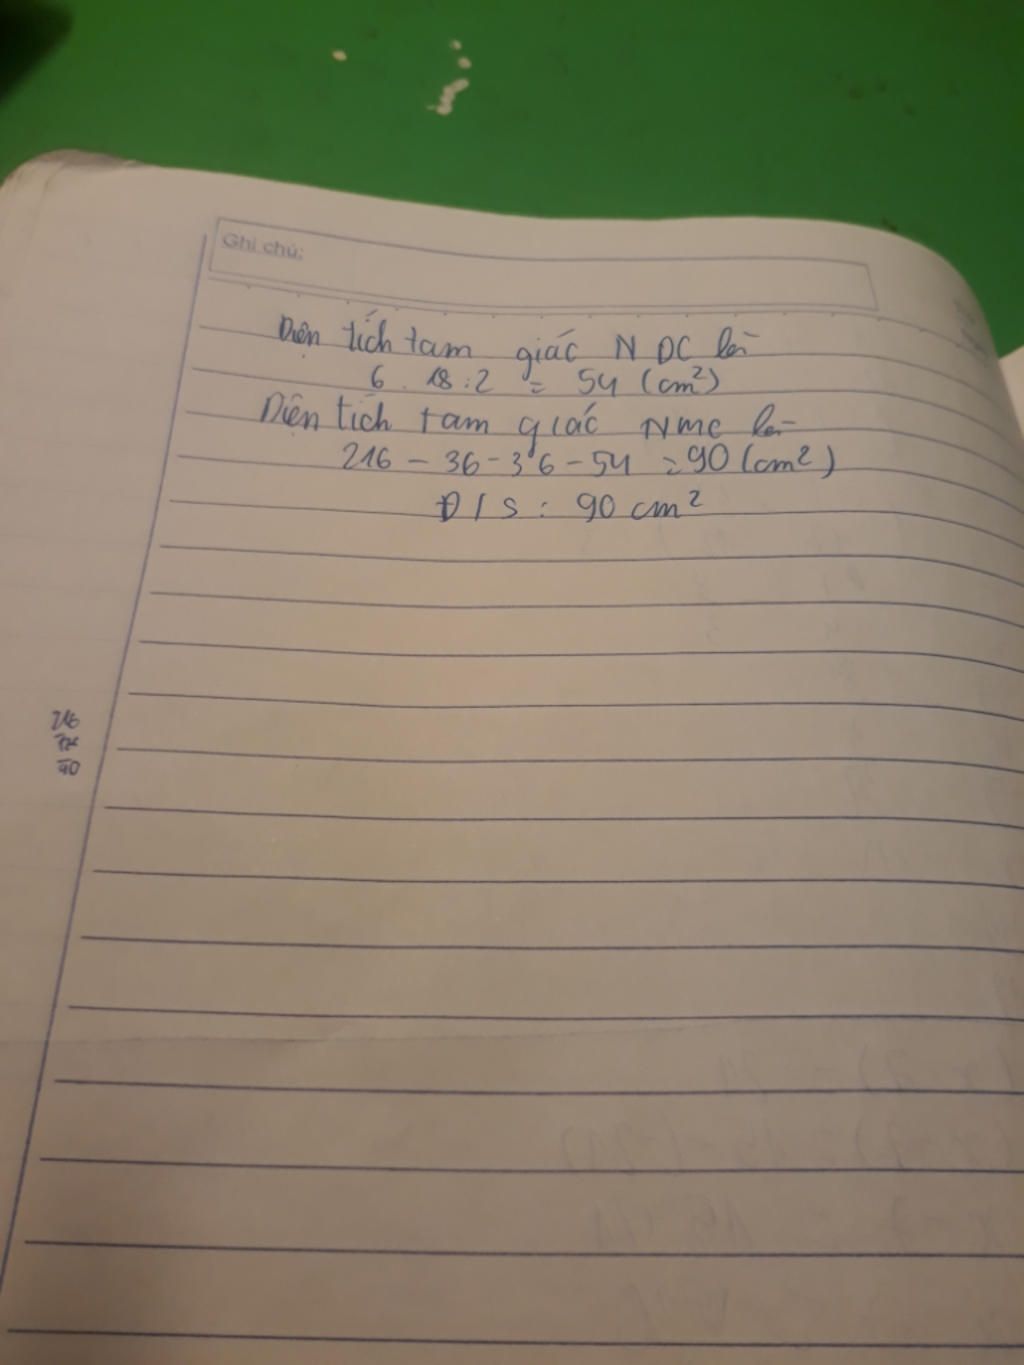 Ghi chú:
Diện tích tam giác NDC là
6 . 18 : 2 = 54 (cm²)
Diện tích tam giác NMC là
216 - 36 - 36 - 54 = 90 (cm²)
Đ/S : 90 cm²
216
90